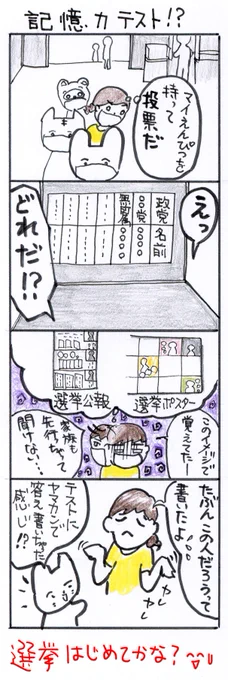 記憶力テスト!?
マイえんぴつを
持って
投票だ
えっ
政党 名前
〇党 〇〇〇
無所属 〇〇〇
どれだ!?
選挙ポスター
選挙公報
このイメージで
覚えてた…
家族も
先行っちゃって
聞けない…
たぶんこの人だろうって
書いたよ…
ヤレ
ヤレ
テストに
ヤマカンで
答え書いちゃった
感じ!?
選挙はじめてかな?